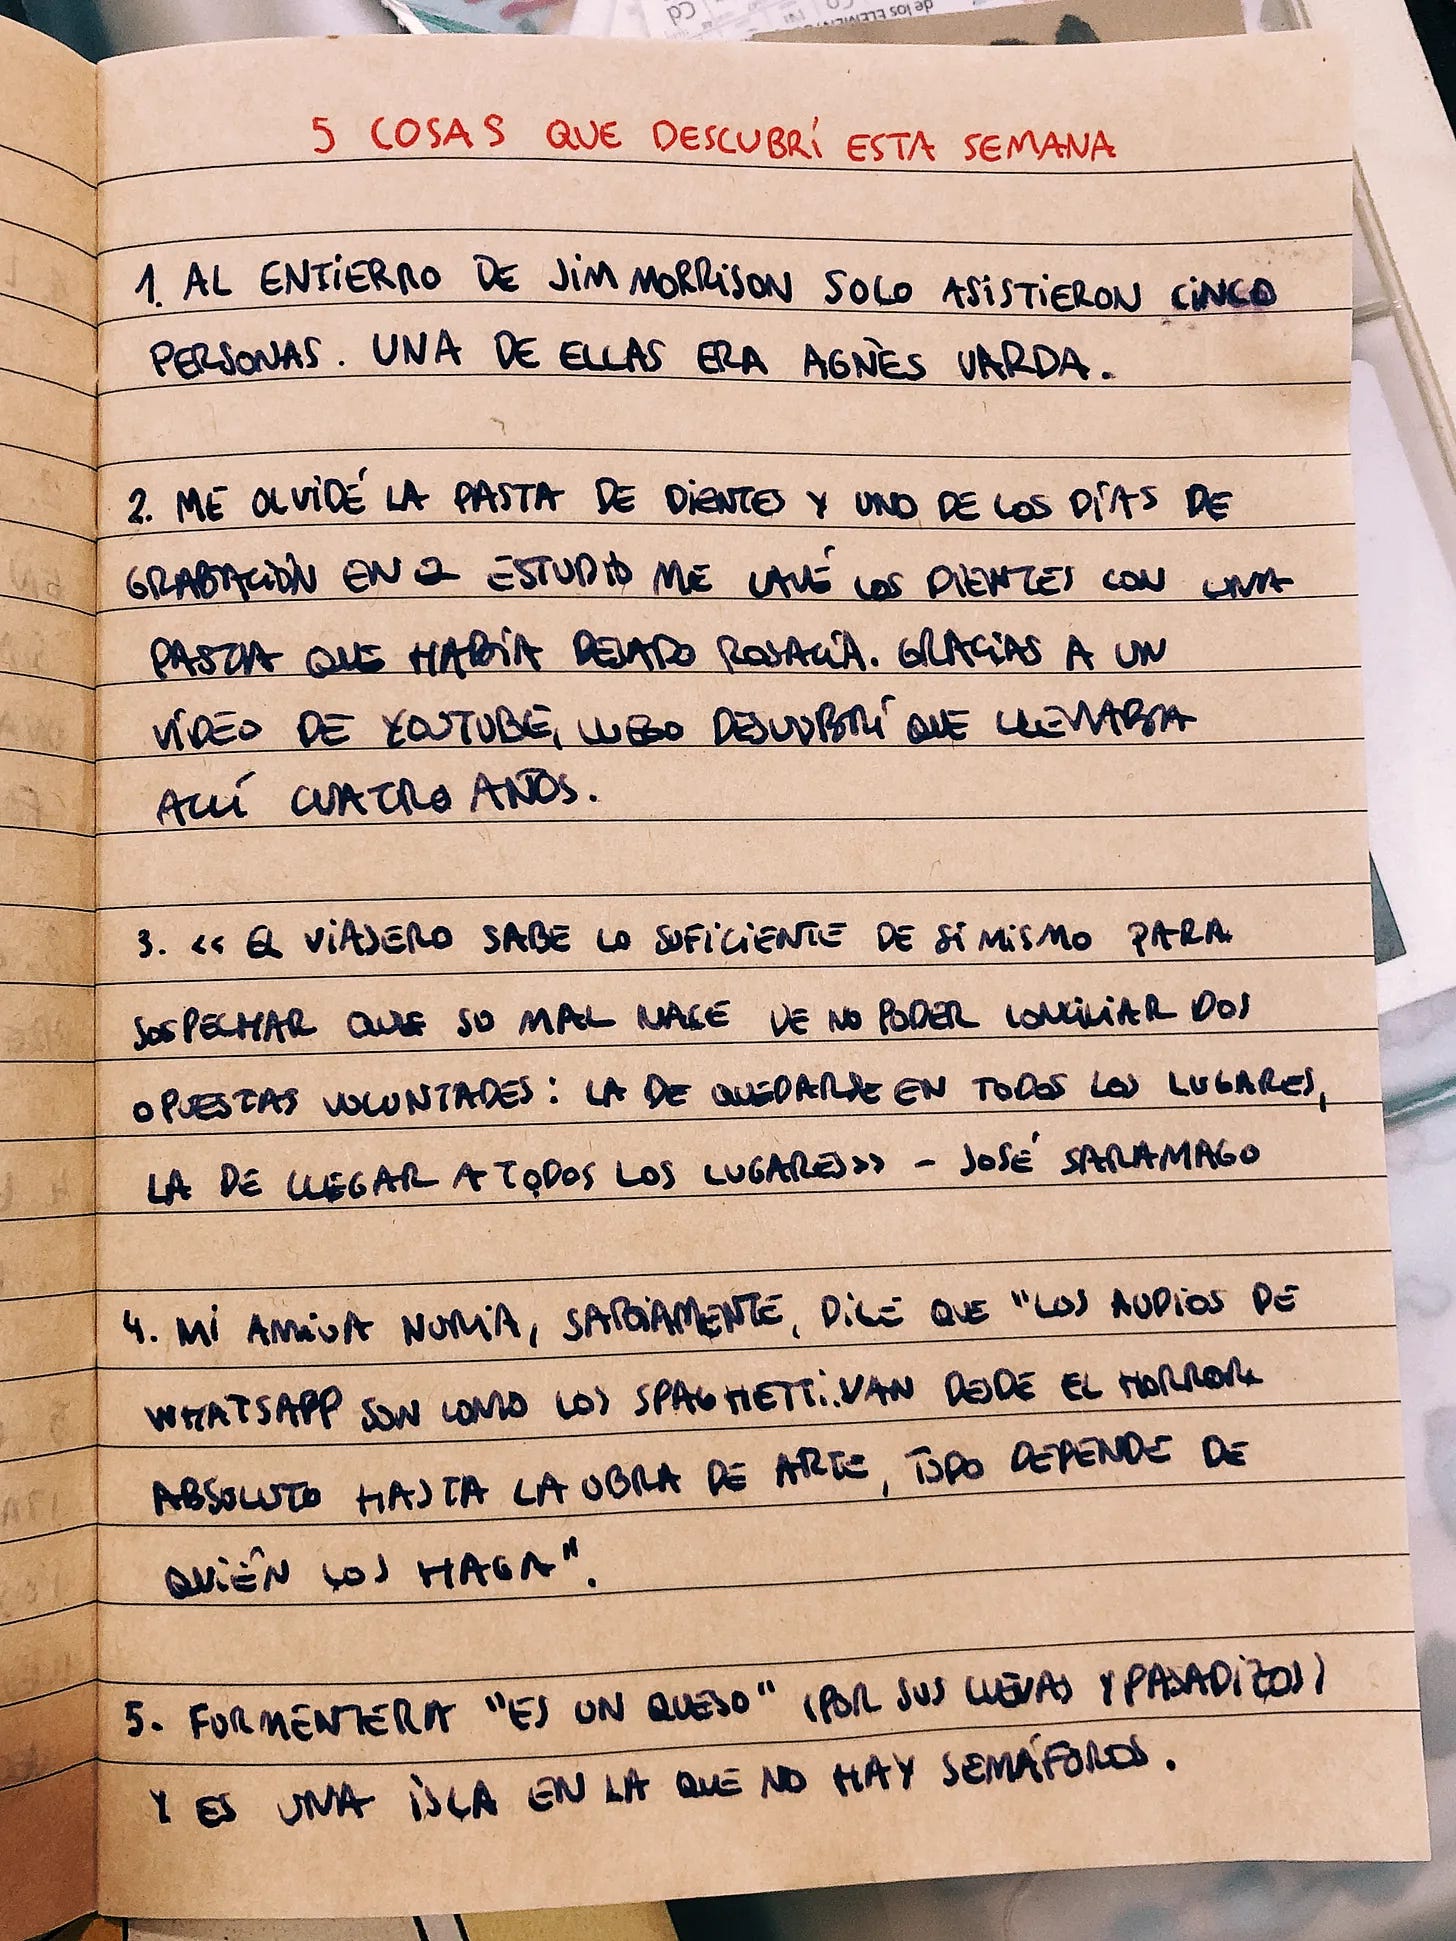 de los ELEMEN
Cd
5 COSAS QUE DESCUBRÍ ESTA SEMANA
1. AL ENTIERRO DE JIM MORRISON SOLO ASISTIERON CINCO
PERSONAS. UNA DE ELLAS ERA AGNÈS VARDA.
2. ME OLVIDÉ LA PASTA DE DIENTES Y UNO DE LOS DÍAS DE
GRABACIÓN EN ESTUDIO ME LAVÉ LOS DIENTES CON UNA
PASTA QUE HABÍA DEJADO ROSALÍA. GRACIAS A UN
VÍDEO DE YOUTUBE, LUEGO DESCUBRÍ QUE LLEVABA
ALLÍ CUATRO AÑOS.
3. «EL VIAJERO SABE LO SUFICIENTE DE SÍ MISMO PARA
SOSPECHAR QUE SU MAL NACE DE NO PODER CONCILIAR DOS
OPUESTAS VOLUNTADES: LA DE QUEDARSE EN TODOS LOS LUGARES,
LA DE LLEGAR A TODOS LOS LUGARES» - JOSÉ SARAMAGO
4. MI AMIGA NURIA, SABIAMENTE, DICE QUE "LOS AUDIOS DE
WHATSAPP SON COMO LOS SPAGHETTI: VAN DESDE EL HORROR
ABSOLUTO HASTA LA OBRA DE ARTE, TODO DEPENDE DE
QUIÉN LOS HAGA".
5. FORMENTERA "ES UN QUESO" (POR SUS CUEVAS Y PASADIZOS)
Y ES UNA ISLA EN LA QUE NO HAY SEMÁFOROS.